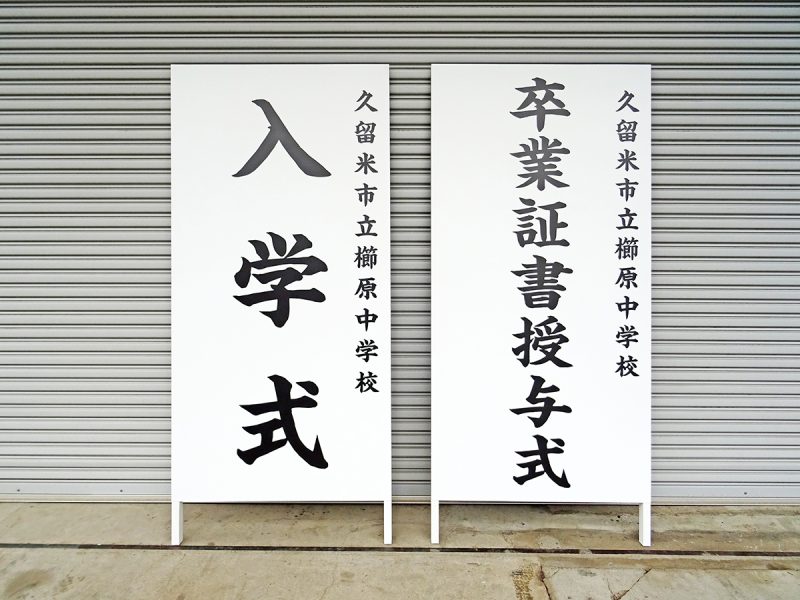 久留米市立櫛原中学校
入学式
久留米市立櫛原中学校
卒業証書授与式